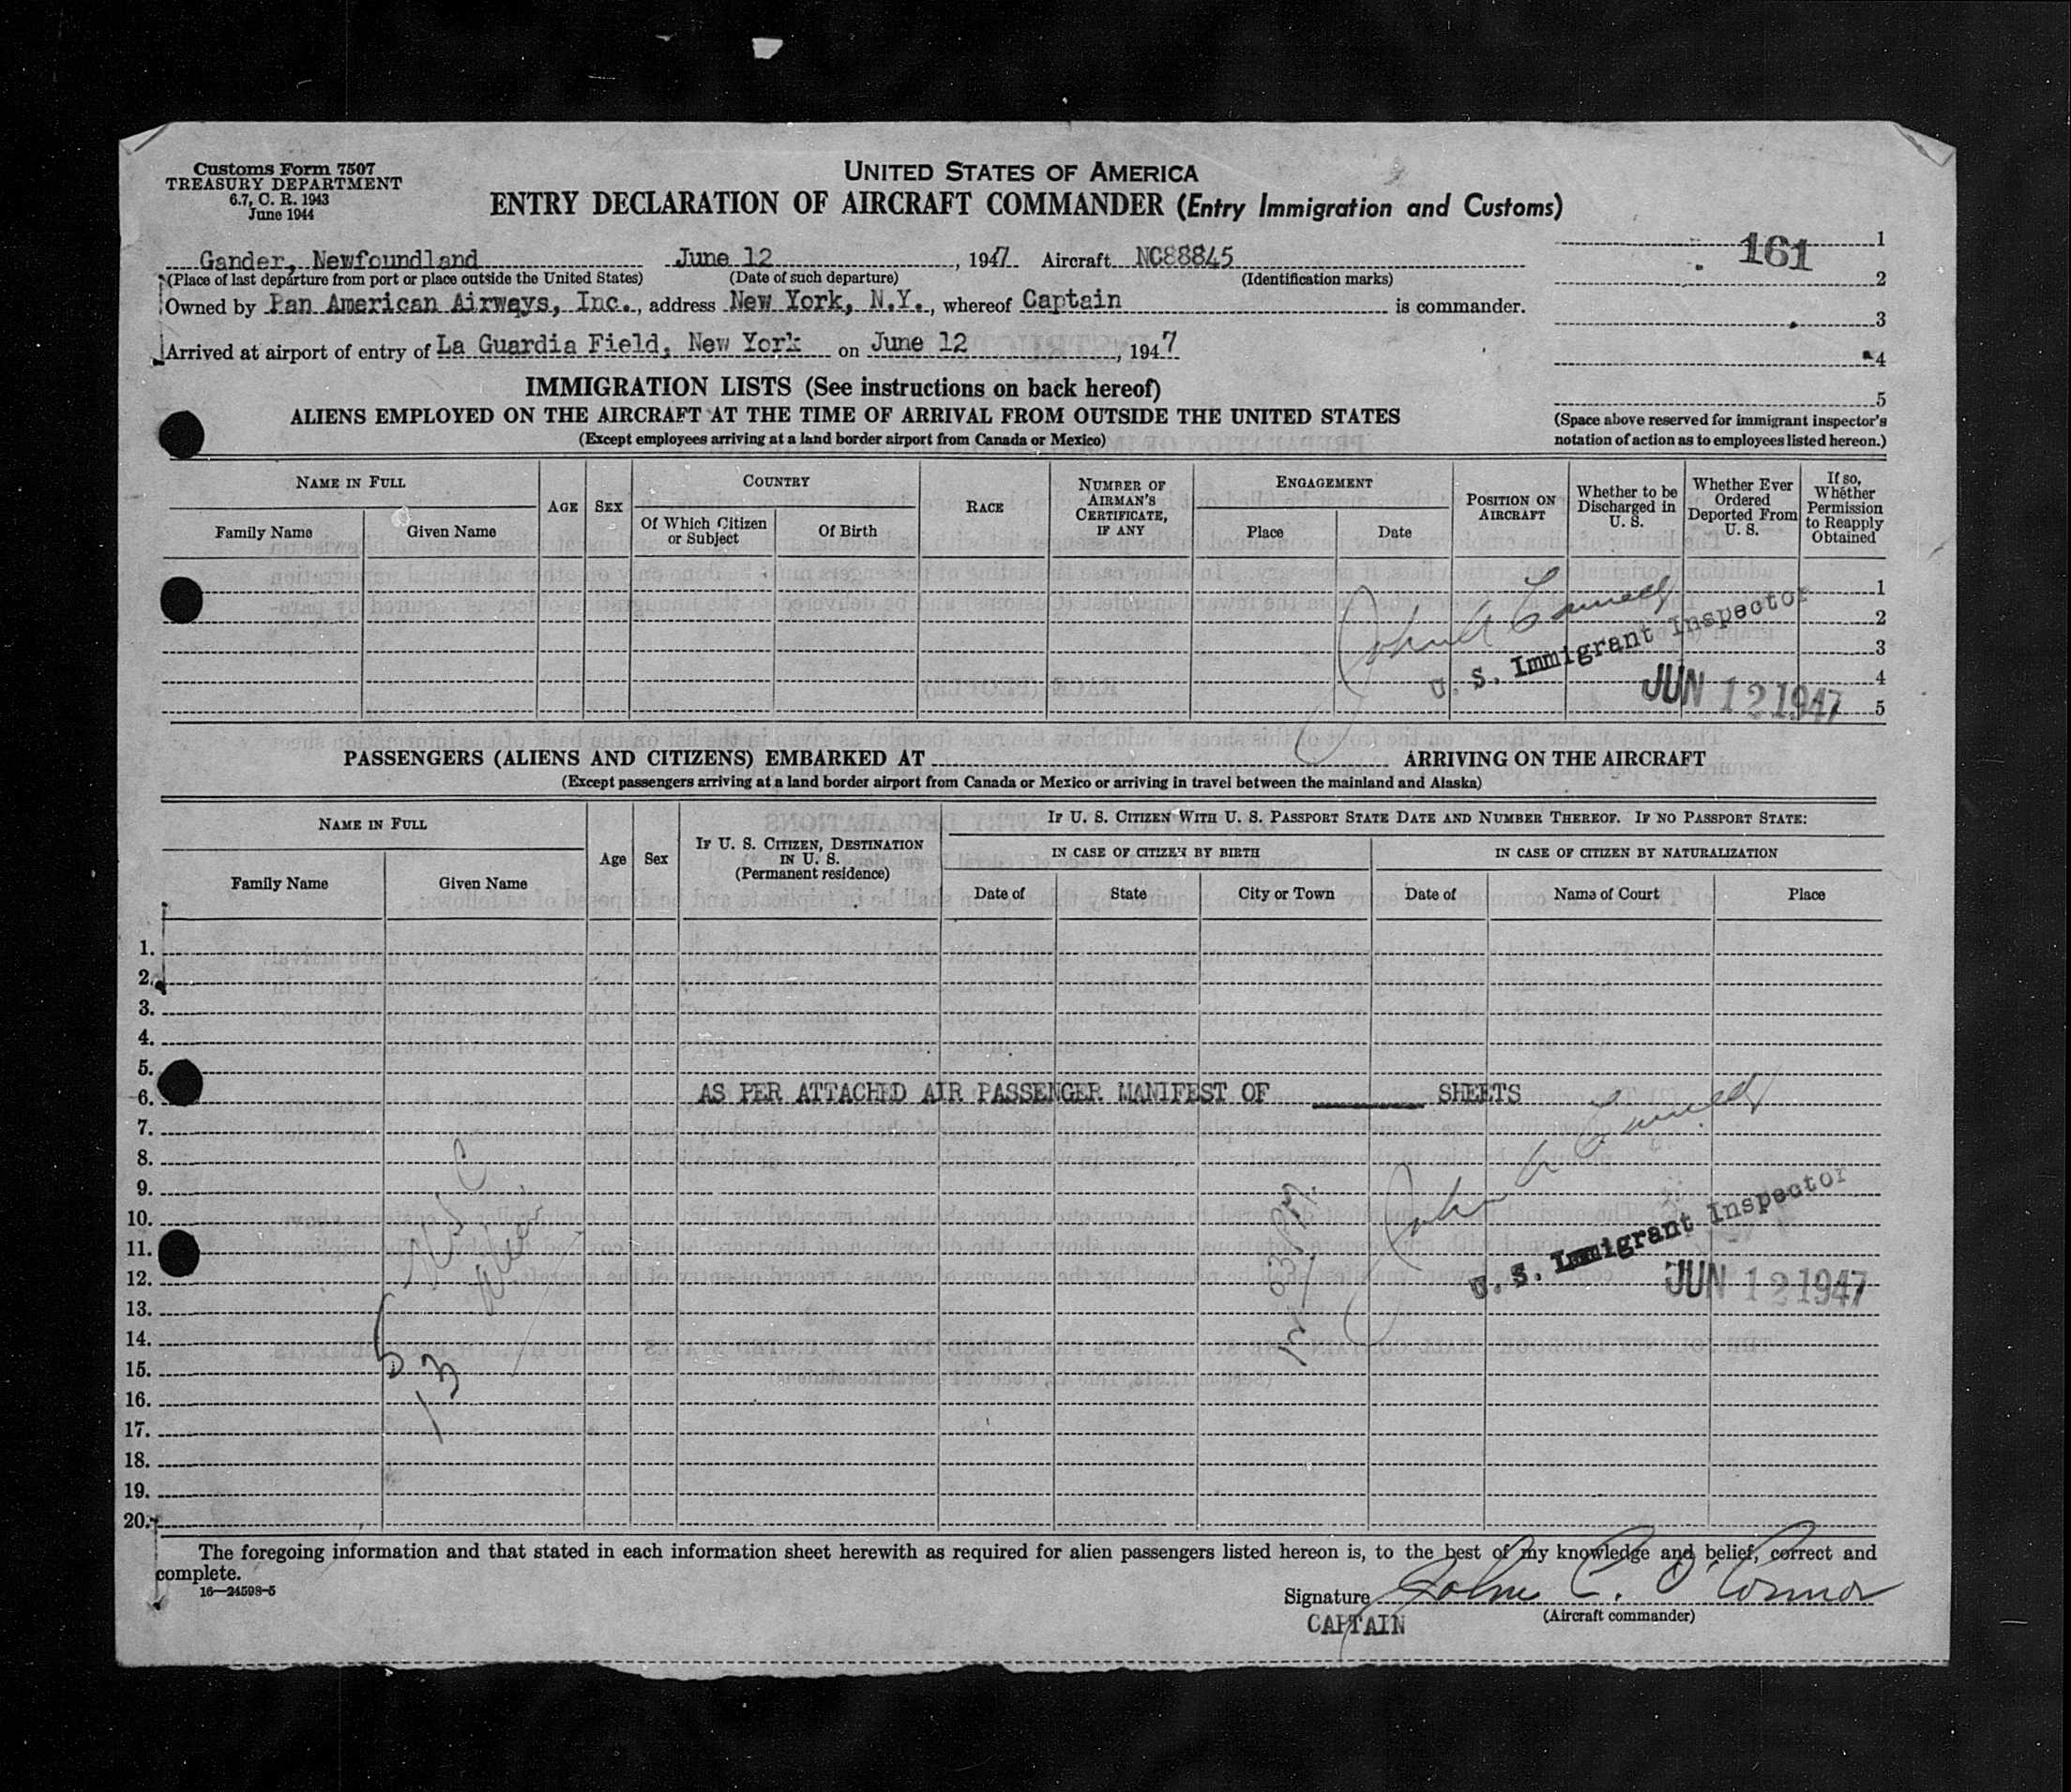 Customs Form 7507
TREASURY DEPARTMENT
6.7, C. R. 1943
June 1944
UNITED STATES OF AMERICA
ENTRY DECLARATION OF AIRCRAFT COMMANDER (Entry Immigration and Customs)
161
Gander, Newfoundland June 12, 1947 Aircraft NC88845
(Place of last departure from port or place outside the United States) (Date of such departure) (Identification marks)
Owned by Pan American Airways, Inc., address New York, N.Y., whereof Captain is commander.
Arrived at airport of entry of La Guardia Field, New York on June 12, 1947
1
2
3
4
5
(Space above reserved for immigrant inspector's
notation of action as to employees listed hereon.)
IMMIGRATION LISTS (See instructions on back hereof)
ALIENS EMPLOYED ON THE AIRCRAFT AT THE TIME OF ARRIVAL FROM OUTSIDE THE UNITED STATES
(Except employees arriving at a land border airport from Canada or Mexico)
NAME IN FULL
Family Name Given Name
AGE
SEX
COUNTRY
Of Which Citizen or Subject Of Birth
RACE
NUMBER OF AIRMAN'S CERTIFICATE, IF ANY
ENGAGEMENT
Place Date
POSITION ON AIRCRAFT
Whether to be Discharged in U. S.
Whether Ever Ordered Deported From U. S.
If so, Whether Permission to Reapply Obtained
1
2
3
4
5
U. S. Immigrant Inspector
JUN 12 1947
PASSENGERS (ALIENS AND CITIZENS) EMBARKED AT ARRIVING ON THE AIRCRAFT
(Except passengers arriving at a land border airport from Canada or Mexico or arriving in travel between the mainland and Alaska)
NAME IN FULL
Family Name Given Name
Age
Sex
IF U. S. CITIZEN, DESTINATION IN U. S.
(Permanent residence)
IF U. S. CITIZEN WITH U. S. PASSPORT STATE DATE AND NUMBER THEREOF. IF NO PASSPORT STATE:
IN CASE OF CITIZEN BY BIRTH IN CASE OF CITIZEN BY NATURALIZATION
Date of State City or Town Date of Name of Court Place
1.
2.
3.
4.
5.
6. AS PER ATTACHED AIR PASSENGER MANIFEST OF SHEETS
7.
8.
9.
10.
11.
12.
13.
14.
15.
16.
17.
18.
19.
20.
5
13
U. S. Immigrant Inspector
JUN 12 1947
The foregoing information and that stated in each information sheet herewith as required for alien passengers listed hereon is, to the best of my knowledge and belief, correct and
complete.
16—24598-5
Signature John C. O'Connor
(Aircraft commander)
CAPTAIN